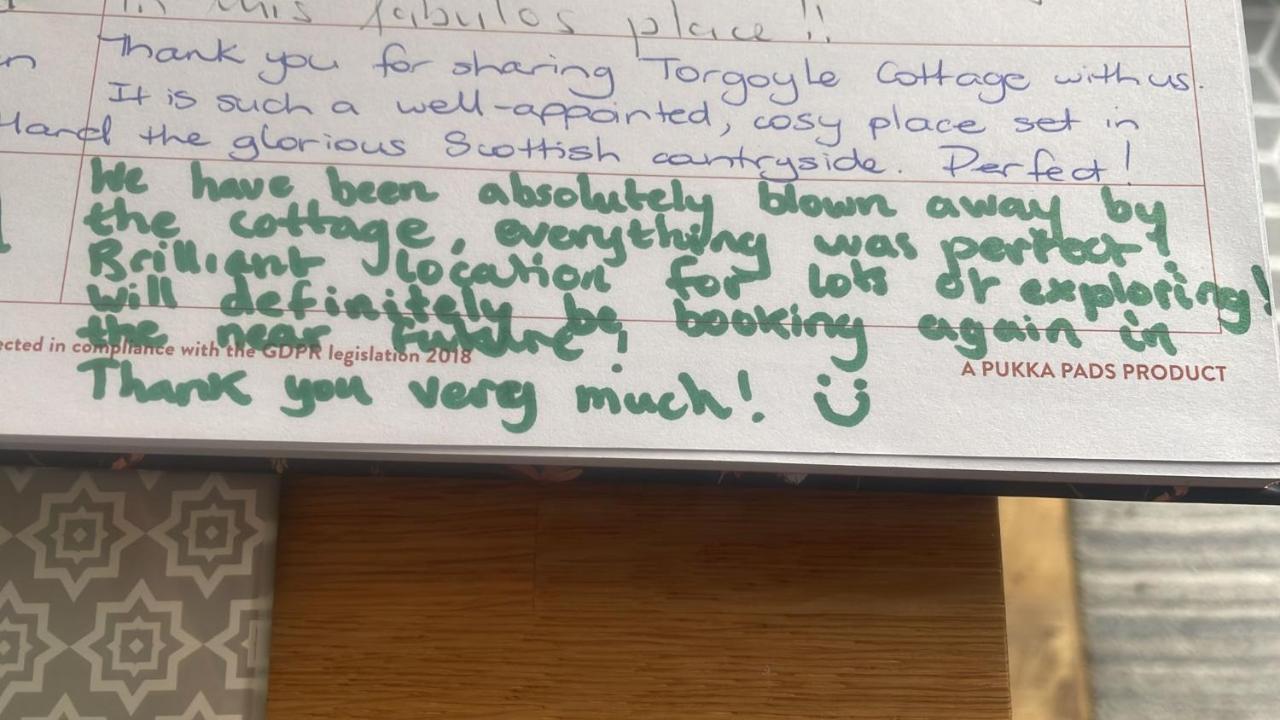 in this fabulos place !!
Thank you for sharing Torgoyle Cottage with us.
It is such a well-appointed, cosy place set in
the glorious Scottish countryside. Perfect!
We have been absolutely blown away by
the cottage, everything was perfect!
Brilliant location for lots of exploring!
will definitely be booking again in
the near future!
ected in compliance with the GDPR legislation 2018
A PUKKA PADS PRODUCT
Thank you very much! :)